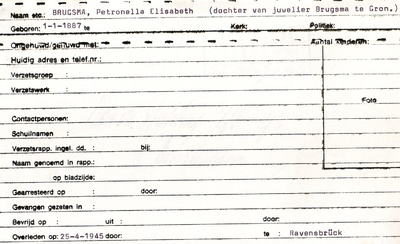 Naam etc.: BRUGSMA, Petronella Elisabeth (dochter van juwelier Brugsma te Gron.)
Geboren: 1-1-1887 te Kerk: Politiek:
Ongehuwd/gehuwd met: Aantal kinderen:
Huidig adres en telef.nr.:
Verzetsgroep :
Verzetswerk :
Foto
Contactpersonen:
Schuilnamen :
Verzetsrapp. ingel. dd. : bij:
Naam genoemd in rapp.:
op bladzijde:
Gearresteerd op : door:
Gevangen gezeten in :
Bevrijd op : uit : door:
Overleden op: 25-4-1945 door: te : Ravensbrück